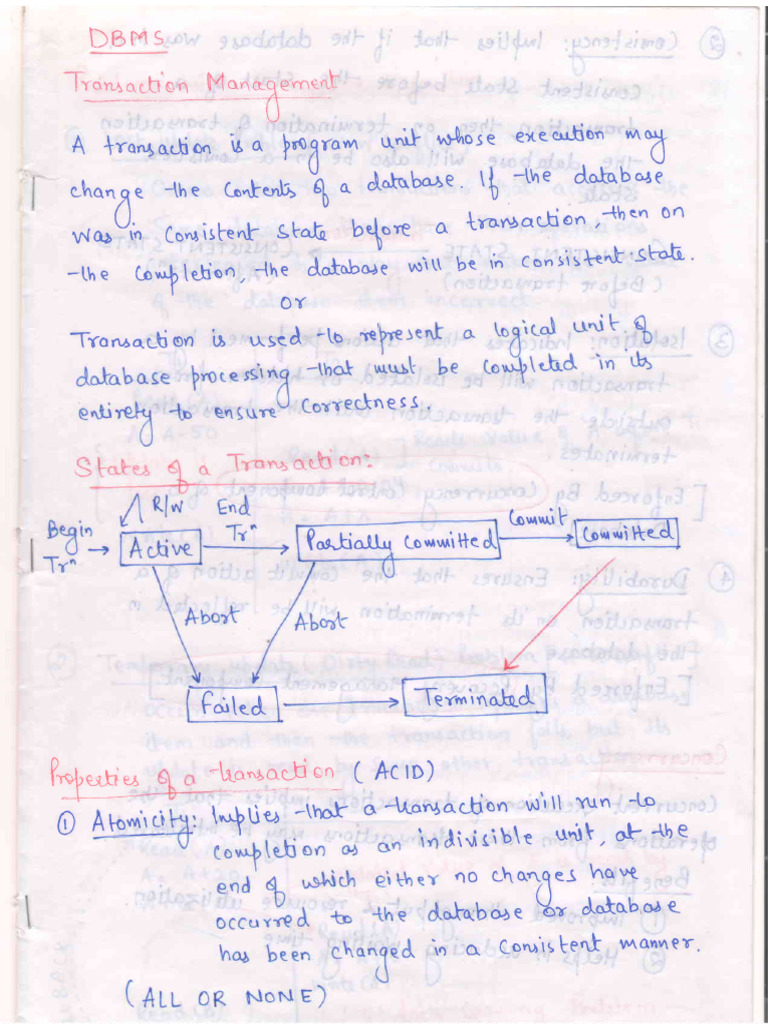 DBMS
Transaction Management
A transaction is a program unit whose execution may
change the contents of a database. If the database
was in consistent state before a transaction, then on
the completion, the database will be in consistent state.
or
Transaction is used to represent a logical unit of
database processing that must be completed in its
entirety to ensure correctness.
States of a Transaction:
R/W End
Begin Trⁿ Commit
Trⁿ Active Partially Committed Committed
Abort Abort
Failed Terminated
Properties of a transaction (ACID)
① Atomicity: Implies that a transaction will run to
completion as an indivisible unit, at the
end of which either no changes have
occurred to the database or database
has been changed in a consistent manner.
(ALL OR NONE)